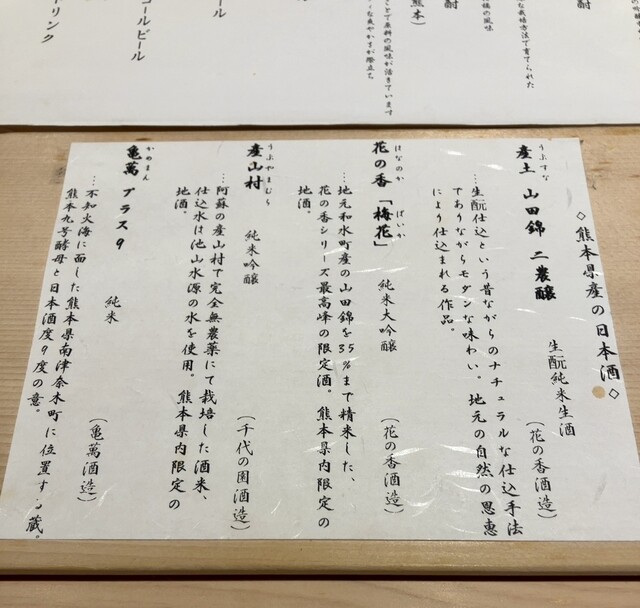 の味
酎
な栽培方法で育てられた
穂の風味
酎
熊本)
ことで原料の風味が活きています
な爽やかさが際立ち
コールビール
ドリンク
◇熊本県産の日本酒◇
うぶすな
産土 山田錦 二農醸 生酛純米生酒 (花の香酒造)
…生酛仕込という昔ながらのナチュラルな仕込手法
でありながらモダンな味わい。地元の自然の恩恵
により仕込まれる作品。
はなのか ばいか
花の香「梅花」 純米大吟醸 (花の香酒造)
…地元和水町産の山田錦を35%まで精米した、
花の香シリーズ最高峰の限定酒。熊本県内限定の
地酒。
うぶやまむら
産山村 純米吟醸 (千代の園酒造)
…阿蘇の産山村で完全無農薬にて栽培した酒米、
仕込水は池山水源の水を使用。熊本県内限定の
地酒。
かめまん
亀萬 プラス9 純米 (亀萬酒造)
…不知火海に面した熊本県南津奈木町に位置する蔵。
熊本九号酵母と日本酒度9度の意。